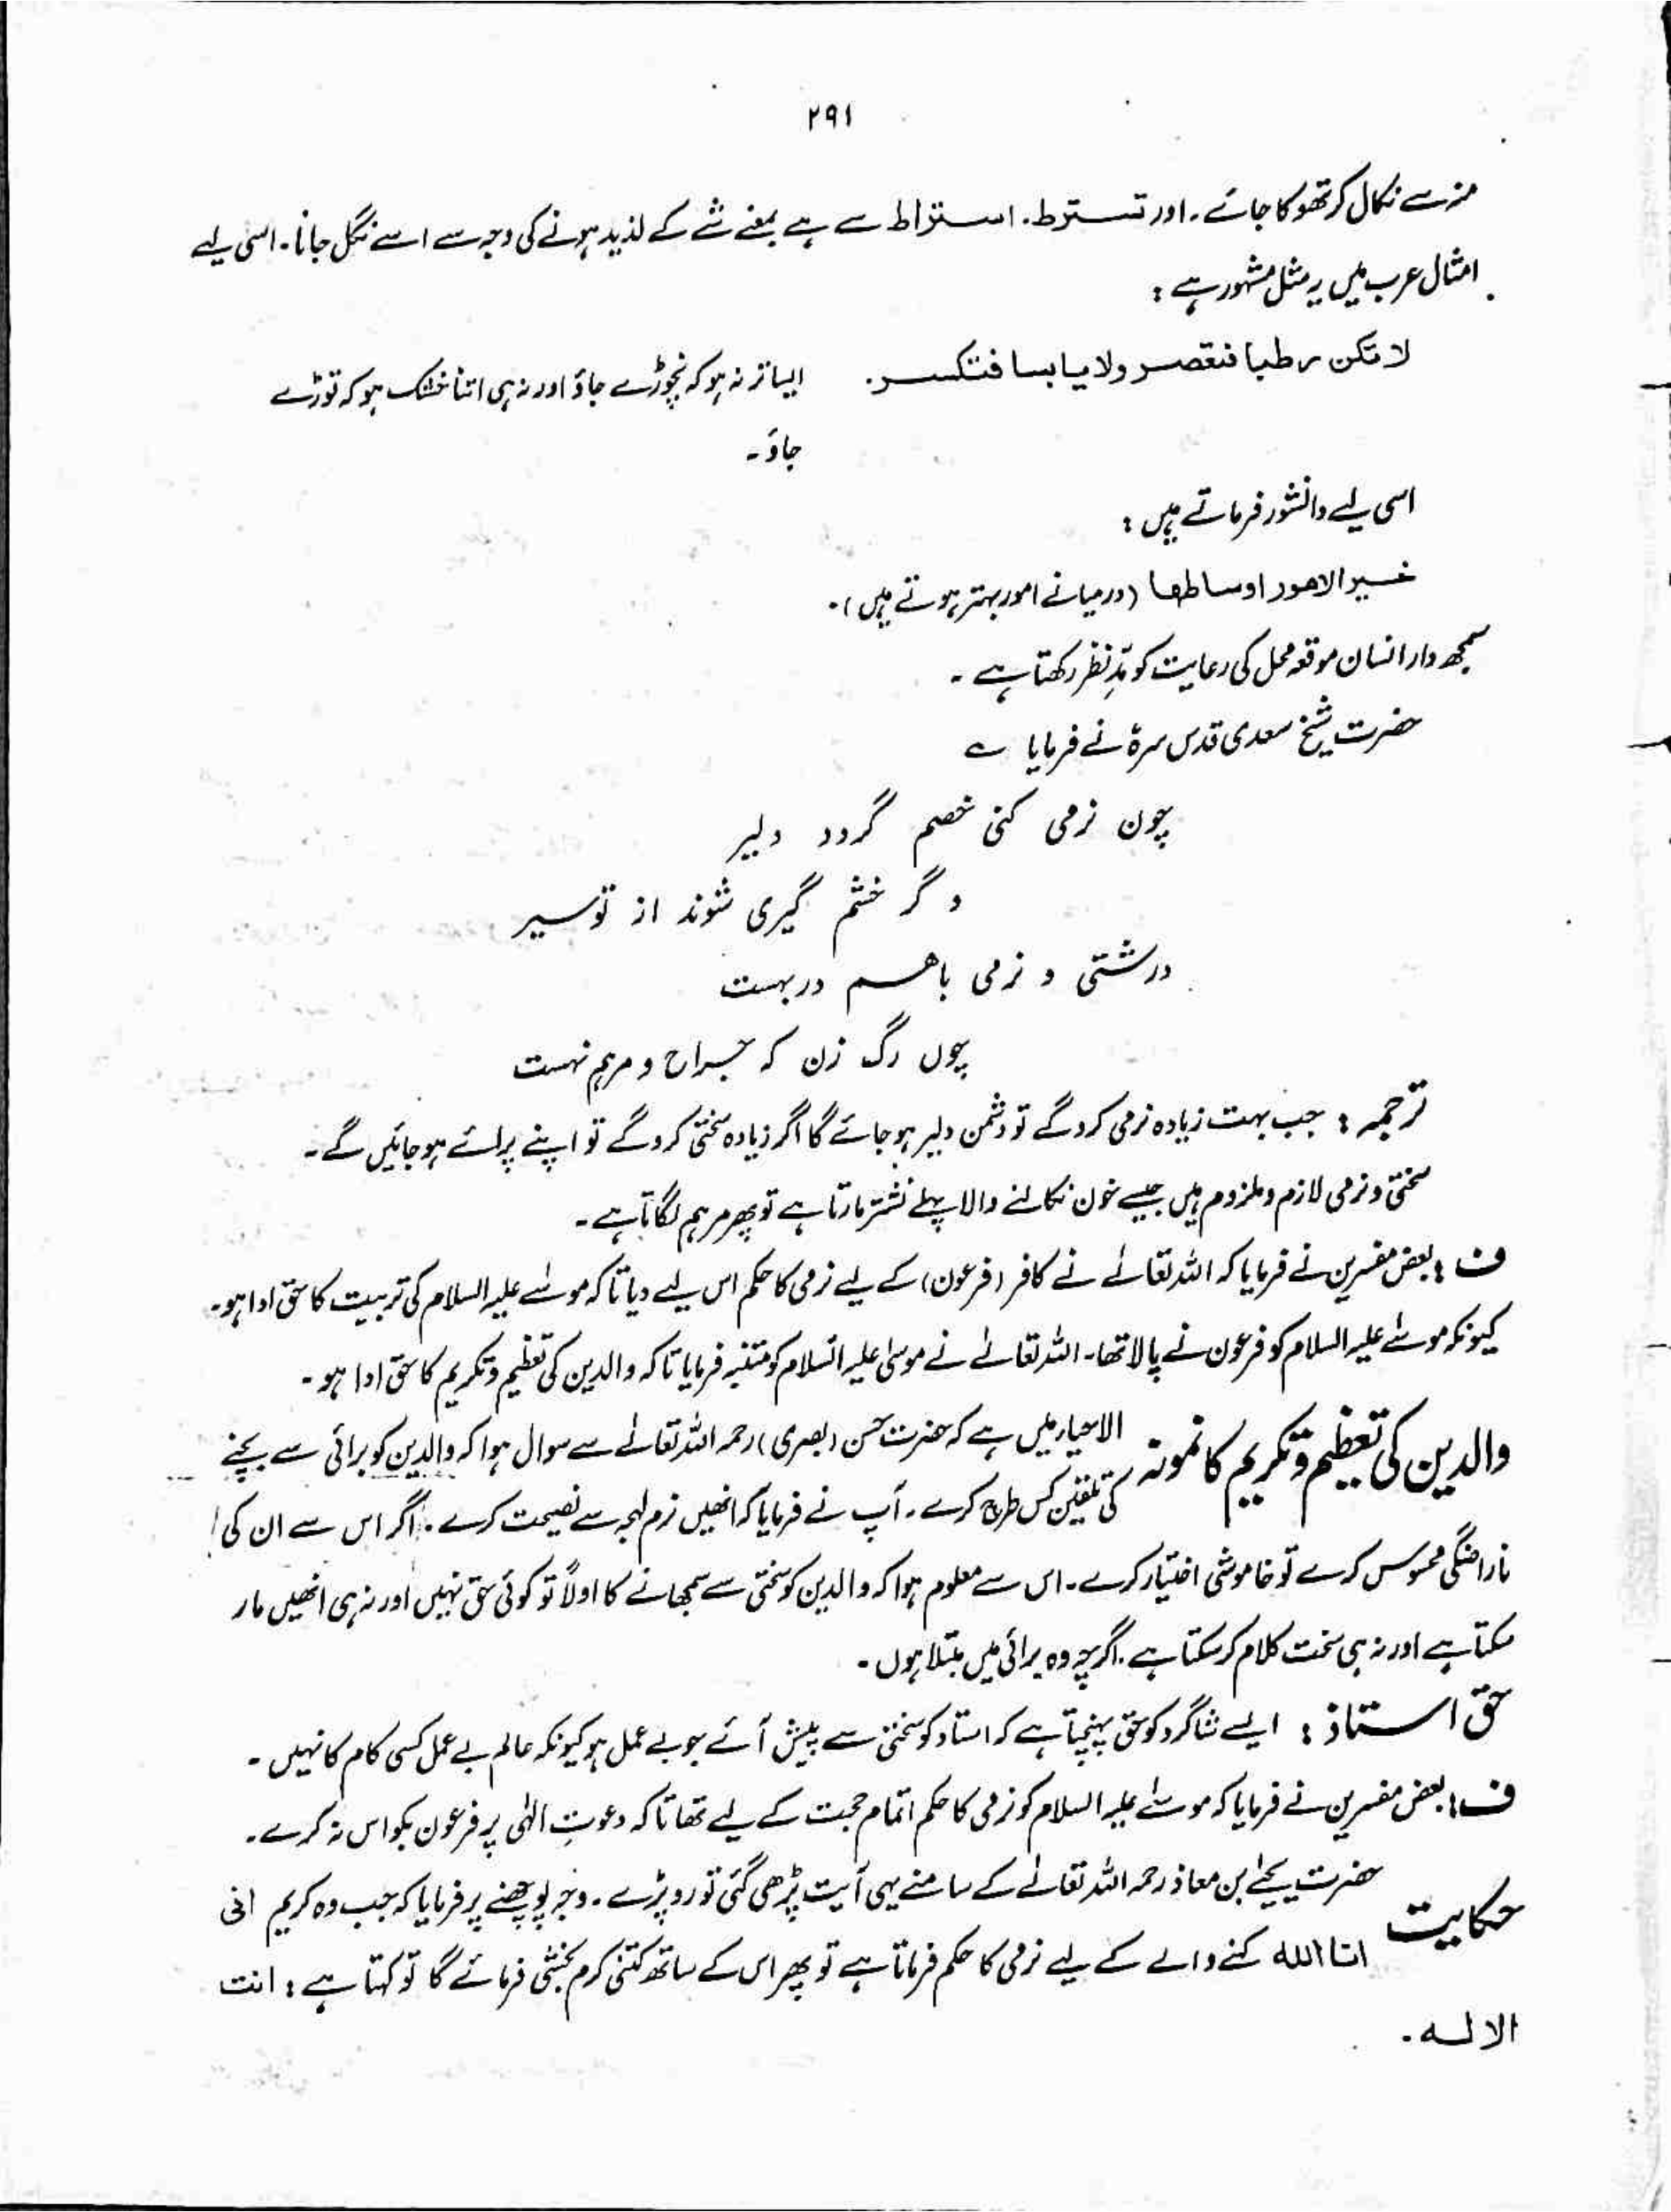 ۲۹۱
منہ سے نکال کر تھوکا جائے۔ اور تسترط۔ استراط سے ہے بمعنے شے کے لذیذ ہونے کی وجہ سے اسے نگل جانا۔ اسی لیے
امثال عرب میں یہ مثل مشہور ہے :
لا تکن رطبا فتعصر ولا یابسا فتکسر۔ ایسا تر نہ ہو کہ نچوڑے جاؤ اور نہ ہی اتنا خشک ہو کہ توڑے
جاؤ۔
اسی لیے دانشور فرماتے ہیں :
خیر الامور اوساطھا (درمیانے امور بہتر ہوتے ہیں)۔
سمجھ دار انسان موقعہ محل کی رعایت کو مدِّنظر رکھتا ہے۔
حضرت شیخ سعدی قدس سرہٗ نے فرمایا ؎
چون نرمی کنی خصم گردد دلیر
وگر خشم گیری شوند از تو سیر
درشتی و نرمی باہم دربہست
چوں رگ زن کہ جراح و مرہم نہست
ترجمہ : جب بہت زیادہ نرمی کروگے تو دشمن دلیر ہو جائے گا اگر زیادہ سختی کروگے تو اپنے پرائے ہو جائیں گے۔
سختی و نرمی لازم و ملزوم ہیں جیسے خون نکالنے والا پہلے نشتر مارتا ہے تو پھر مرہم لگاتا ہے۔
ف : بعض مفسرین نے فرمایا کہ اللہ تعالٰے نے کافر (فرعون) کے لیے نرمی کا حکم اس لیے دیا تاکہ موسٰے علیہ السلام کی تربیت کا حق ادا ہو۔
کیونکہ موسٰے علیہ السلام کو فرعون نے پالا تھا۔ اللہ تعالٰے نے موسیٰ علیہ السلام کو متنبہ فرمایا تاکہ والدین کی تعظیم و تکریم کا حق ادا ہو۔
والدین کی تعظیم و تکریم کا نمونہ الاحیاء میں ہے کہ حضرت حسن (بصری) رحمہ اللہ تعالٰے سے سوال ہوا کہ والدین کو برائی سے بچنے
کی تلقین کس طرح کرے۔ آپ نے فرمایا کہ انھیں نرم لہجہ سے نصیحت کرے۔ اگر اس سے ان کی
ناراضگی محسوس کرے تو خاموشی اختیار کرے۔ اس سے معلوم ہوا کہ والدین کو سختی سے سمجھانے کا اولاً تو کوئی حق نہیں اور نہ ہی انھیں مار
سکتا ہے اور نہ ہی سخت کلام کر سکتا ہے۔ اگرچہ وہ برائی میں مبتلا ہوں۔
حق استاذ : ایسے شاگرد کو حق پہنچتا ہے کہ استاد کو سختی سے پیش آئے جو بے عمل ہو کیونکہ عالم بے عمل کسی کام کا نہیں۔
ف : بعض مفسرین نے فرمایا کہ موسٰے علیہ السلام کو نرمی کا حکم اتمام حجت کے لیے تھا تاکہ دعوتِ الٰہی پر فرعون بکواس نہ کرے۔
حکایت حضرت یحیٰے ابن معاذ رحمہ اللہ تعالٰے کے سامنے یہی آیت پڑھی گئی تو رو پڑے۔ وجہ پوچھنے پر فرمایا کہ جب وہ کریم انی
انا اللہ کہنے والے کے لیے نرمی کا حکم فرماتا ہے تو پھر اس کے ساتھ کتنی کرم بخشی فرمائے گا تو کہتا ہے : انت
الالہ۔